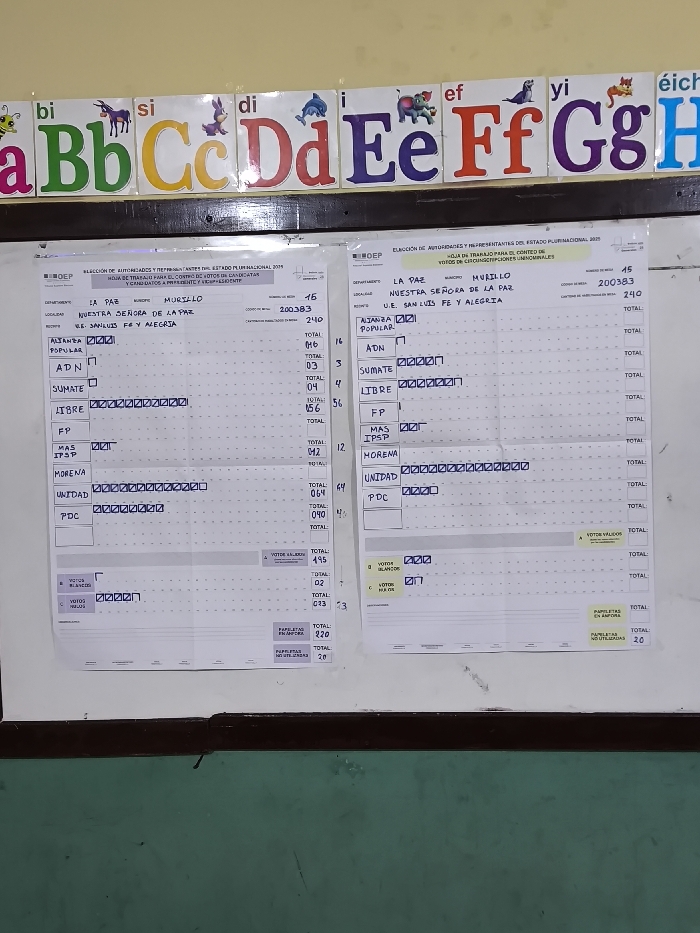 bi si di i ef yi éich
a Bb Cc Dd Ee Ff Gg H
OEP
ELECCIÓN DE AUTORIDADES Y REPRESENTANTES DEL ESTADO PLURINACIONAL 2025
HOJA DE TRABAJO PARA EL CONTEO DE VOTOS DE CANDIDATAS
Y CANDIDATOS A PRESIDENTE Y VICEPRESIDENTE
NÚMERO DE MESA 15
DEPARTAMENTO LA PAZ MUNICIPIO MURILLO
CÓDIGO DE MESA 200383
LOCALIDAD NUESTRA SEÑORA DE LA PAZ
240
RECINTO U.E. SAN LUIS FE Y ALEGRIA
ALIANZA POPULAR TOTAL: 016 16
ADN TOTAL: 03 3
SUMATE TOTAL: 04 4
LIBRE TOTAL: 056 56
FP TOTAL:
MAS IPSP TOTAL: 012 12
MORENA TOTAL:
UNIDAD TOTAL: 064 64
PDC TOTAL: 040
TOTAL:
A VOTOS VÁLIDOS TOTAL: 195
B VOTOS BLANCOS TOTAL: 02
C VOTOS NULOS TOTAL: 023 23
PAPELETAS EN ÁNFORA TOTAL: 220
PAPELETAS NO UTILIZADAS TOTAL: 20
OEP
ELECCIÓN DE AUTORIDADES Y REPRESENTANTES DEL ESTADO PLURINACIONAL 2025
HOJA DE TRABAJO PARA EL CONTEO DE
VOTOS DE CIRCUNSCRIPCIONES UNINOMINALES
NÚMERO DE MESA 15
DEPARTAMENTO LA PAZ MUNICIPIO MURILLO
CÓDIGO DE MESA 200383
LOCALIDAD NUESTRA SEÑORA DE LA PAZ
240
RECINTO U.E. SAN LUIS FE Y ALEGRIA
ALIANZA POPULAR TOTAL:
ADN TOTAL:
SUMATE TOTAL:
LIBRE TOTAL:
FP TOTAL:
MAS IPSP TOTAL:
MORENA TOTAL:
UNIDAD TOTAL:
PDC TOTAL:
TOTAL:
A VOTOS VÁLIDOS TOTAL:
B VOTOS BLANCOS TOTAL:
C VOTOS NULOS TOTAL:
PAPELETAS EN ÁNFORA TOTAL:
PAPELETAS NO UTILIZADAS TOTAL: 20